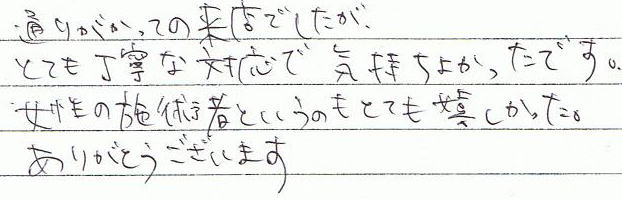 通りがかっての来店でしたが、
とても丁寧な対応で気持ちよかったです。
女性の施術者というのもとても嬉しかった。
ありがとうございます